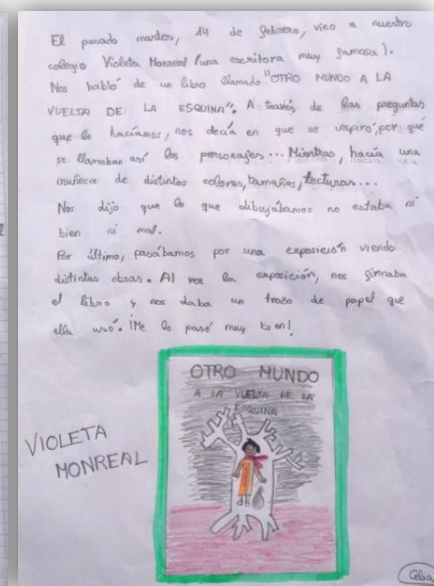 El pasado martes, 14 de febrero, vino a nuestro
colegio Violeta Monreal (una escritora muy famosa).
Nos habló de un libro llamado "OTRO MUNDO A LA
VUELTA DE LA ESQUINA". A través de las preguntas
que le hacíamos, nos decía en que se inspiró, por qué
se llamaban así los personajes... Mientras, hacía una
muñeca de distintos colores, tamaños, texturas...
Nos dijo que lo que dibujábamos no estaba ni
bien ni mal.
Por último, pasábamos por una exposición viendo
distintas obras. Al ver la exposición, nos firmaba
el libro y nos daba un trozo de papel que
ella usó. ¡Me lo pasé muy bien!
OTRO MUNDO
A LA VUELTA DE LA
ESQUINA
VIOLETA
MONREAL
Celia